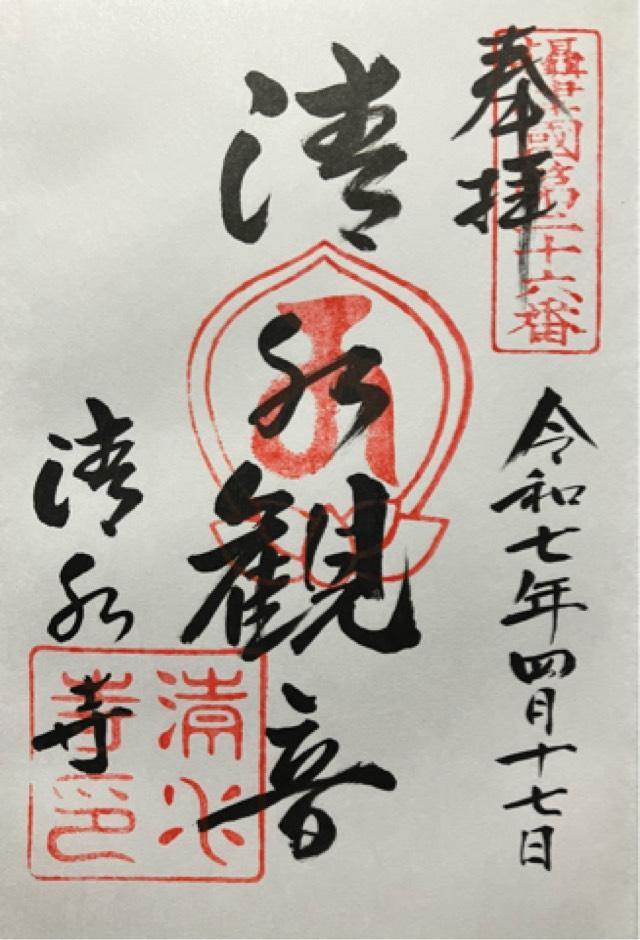 奉拝
攝津國第二十六番
令和七年四月十七日
清水観音
清水寺
清水
寺印